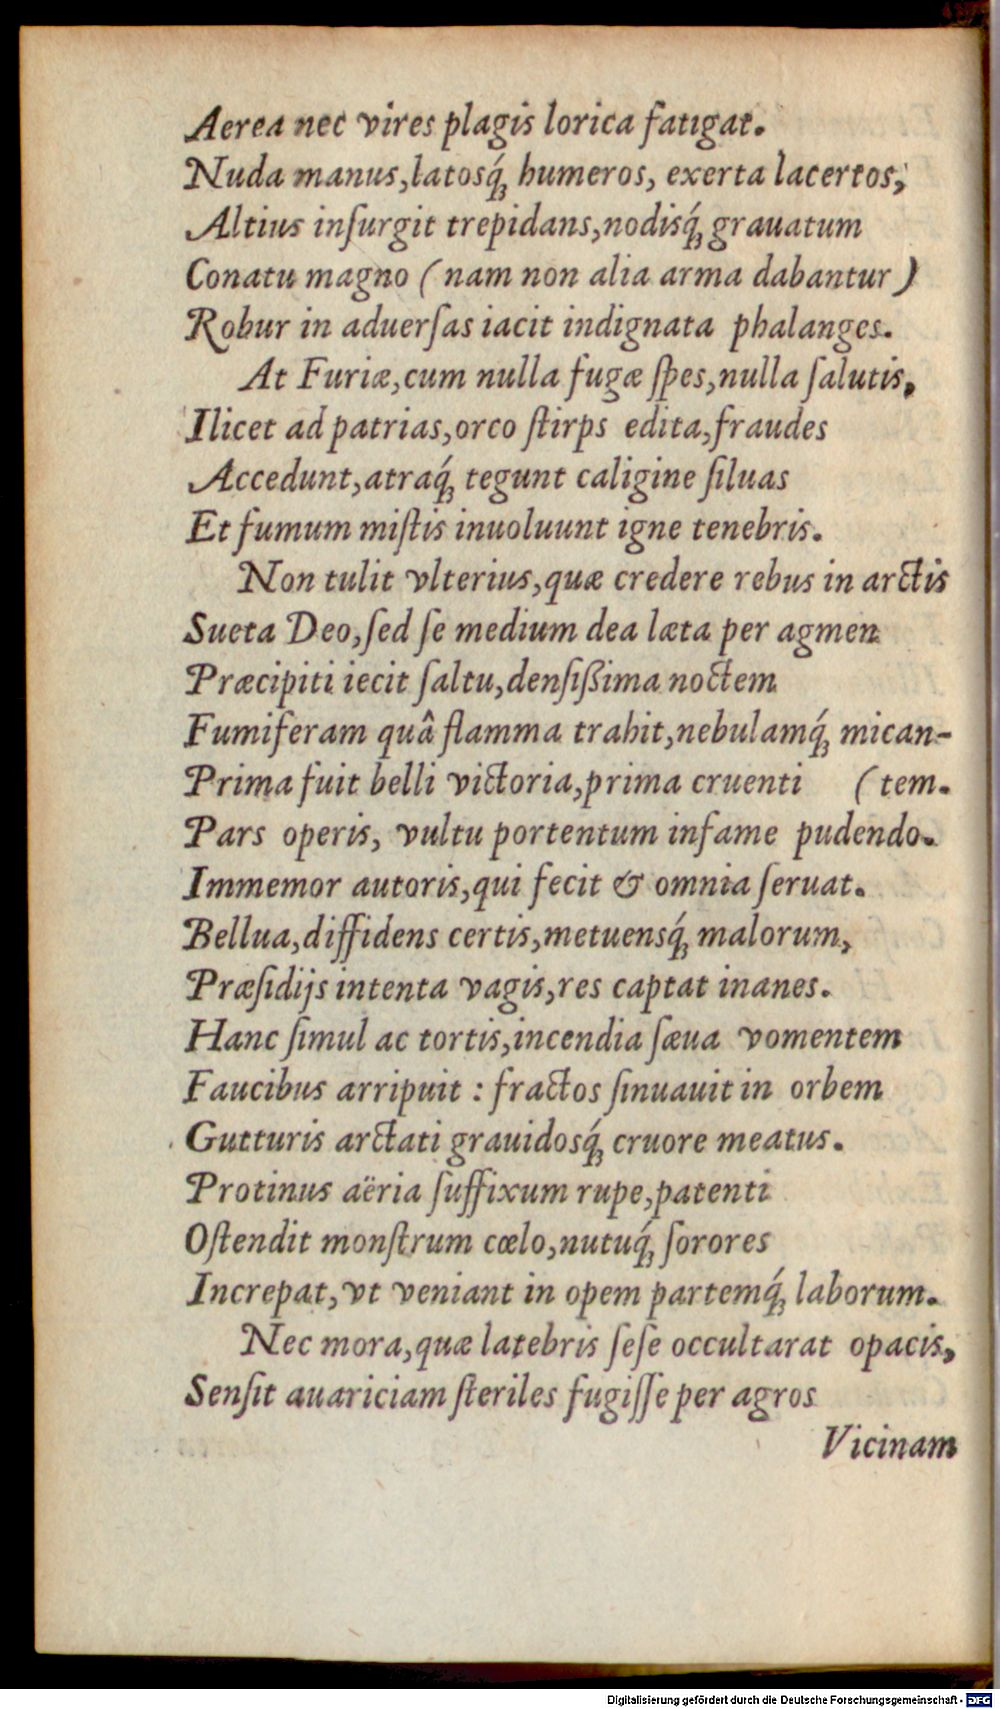 Aerea nec vires plagis lorica fatigat.
Nuda manus, latosq́; humeros, exerta lacertos,
Altius inſurgit trepidans, nodisq́; grauatum
Conatu magno ( nam non alia arma dabantur )
Robur in aduerſas iacit indignata phalanges.
At Furiæ, cum nulla fugæ ſpes, nulla ſalutis,
Ilicet ad patrias, orco ſtirps edita, fraudes
Accedunt, atraq́; tegunt caligine ſiluas
Et fumum miſtis inuoluunt igne tenebris.
Non tulit vlterius, quæ credere rebus in arctis
Sueta Deo, ſed ſe medium dea læta per agmen
Præcipiti iecit ſaltu, denſiſsima noctem
Fumiferam quâ flamma trahit, nebulamq́; mican-
Prima fuit belli victoria, prima cruenti (tem.
Pars operis, vultu portentum infame pudendo.
Immemor autoris, qui fecit & omnia ſeruat.
Bellua, diffidens certis, metuensq́; malorum,
Præſidijs intenta vagis, res captat inanes.
Hanc ſimul ac tortis, incendia ſæua vomentem
Faucibus arripuit : fractos ſinuauit in orbem
Gutturis arctati grauidosq́; cruore meatus.
Protinus aëria ſuffixum rupe, patenti
Oſtendit monſtrum cœlo, nutuq́; ſorores
Increpat, vt veniant in opem partemq́; laborum.
Nec mora, quæ latebris ſeſe occultarat opacis,
Senſit auariciam ſteriles fugiſſe per agros
Vicinam
Digitalisierung gefördert durch die Deutsche Forschungsgemeinschaft - DFG